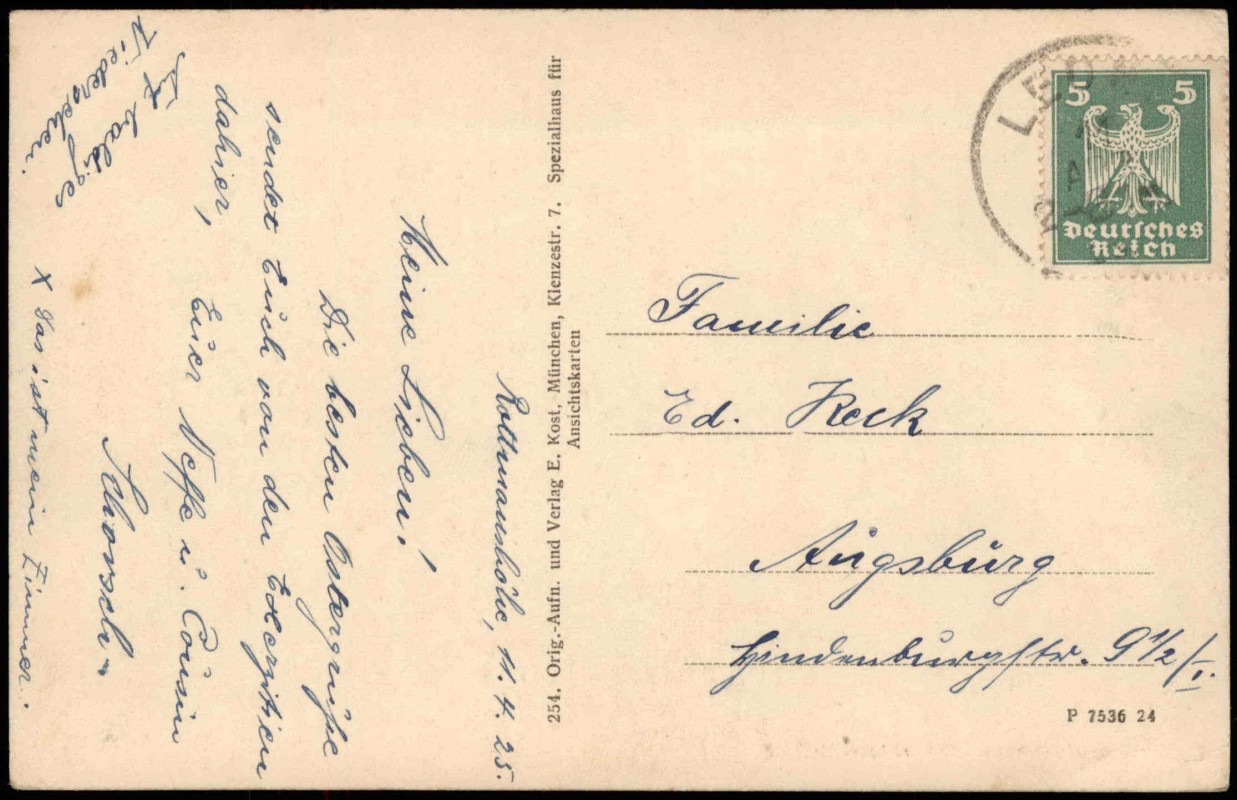 Rottmannshöhe, 11. 4. 25.
Meine Lieben!
Die besten Ostergrüße
sendet Euch von den Exerzitien
daheir,
Euer Neffe u. Cousin
Schorsch.
Auf baldiges
Wiedersehen.
X Das ist mein Zimmer.
254. Orig.-Aufn. und Verlag E. Kost, München, Klenzestr. 7. Spezialhaus für
Ansichtskarten
5 5
Deutsches
Reich
Familie
Ed. Keck
Augsburg
Hindenburgstr. 9 1/2/I.
P 7536 24